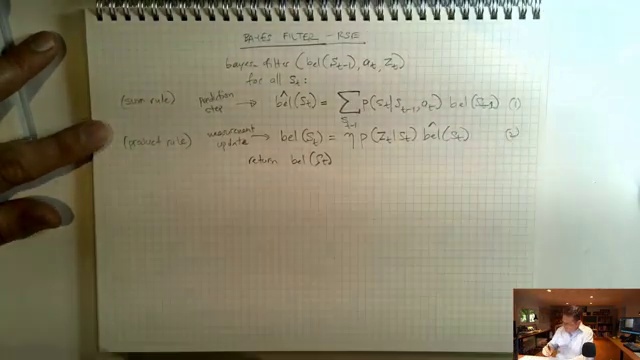 BAYES FILTER - RSE
bayes filter (bel(S_{t-1}), a_t, z_t)
for all S_t:
(sum rule) prediction step → bel̂(S_t) = Σ_{S_{t-1}} p(S_t|S_{t-1}, a_t) bel(S_{t-1}) (1)
(product rule) measurement update → bel(S_t) = η p(z_t|S_t) bel̂(S_t) (2)
return bel(S_t)